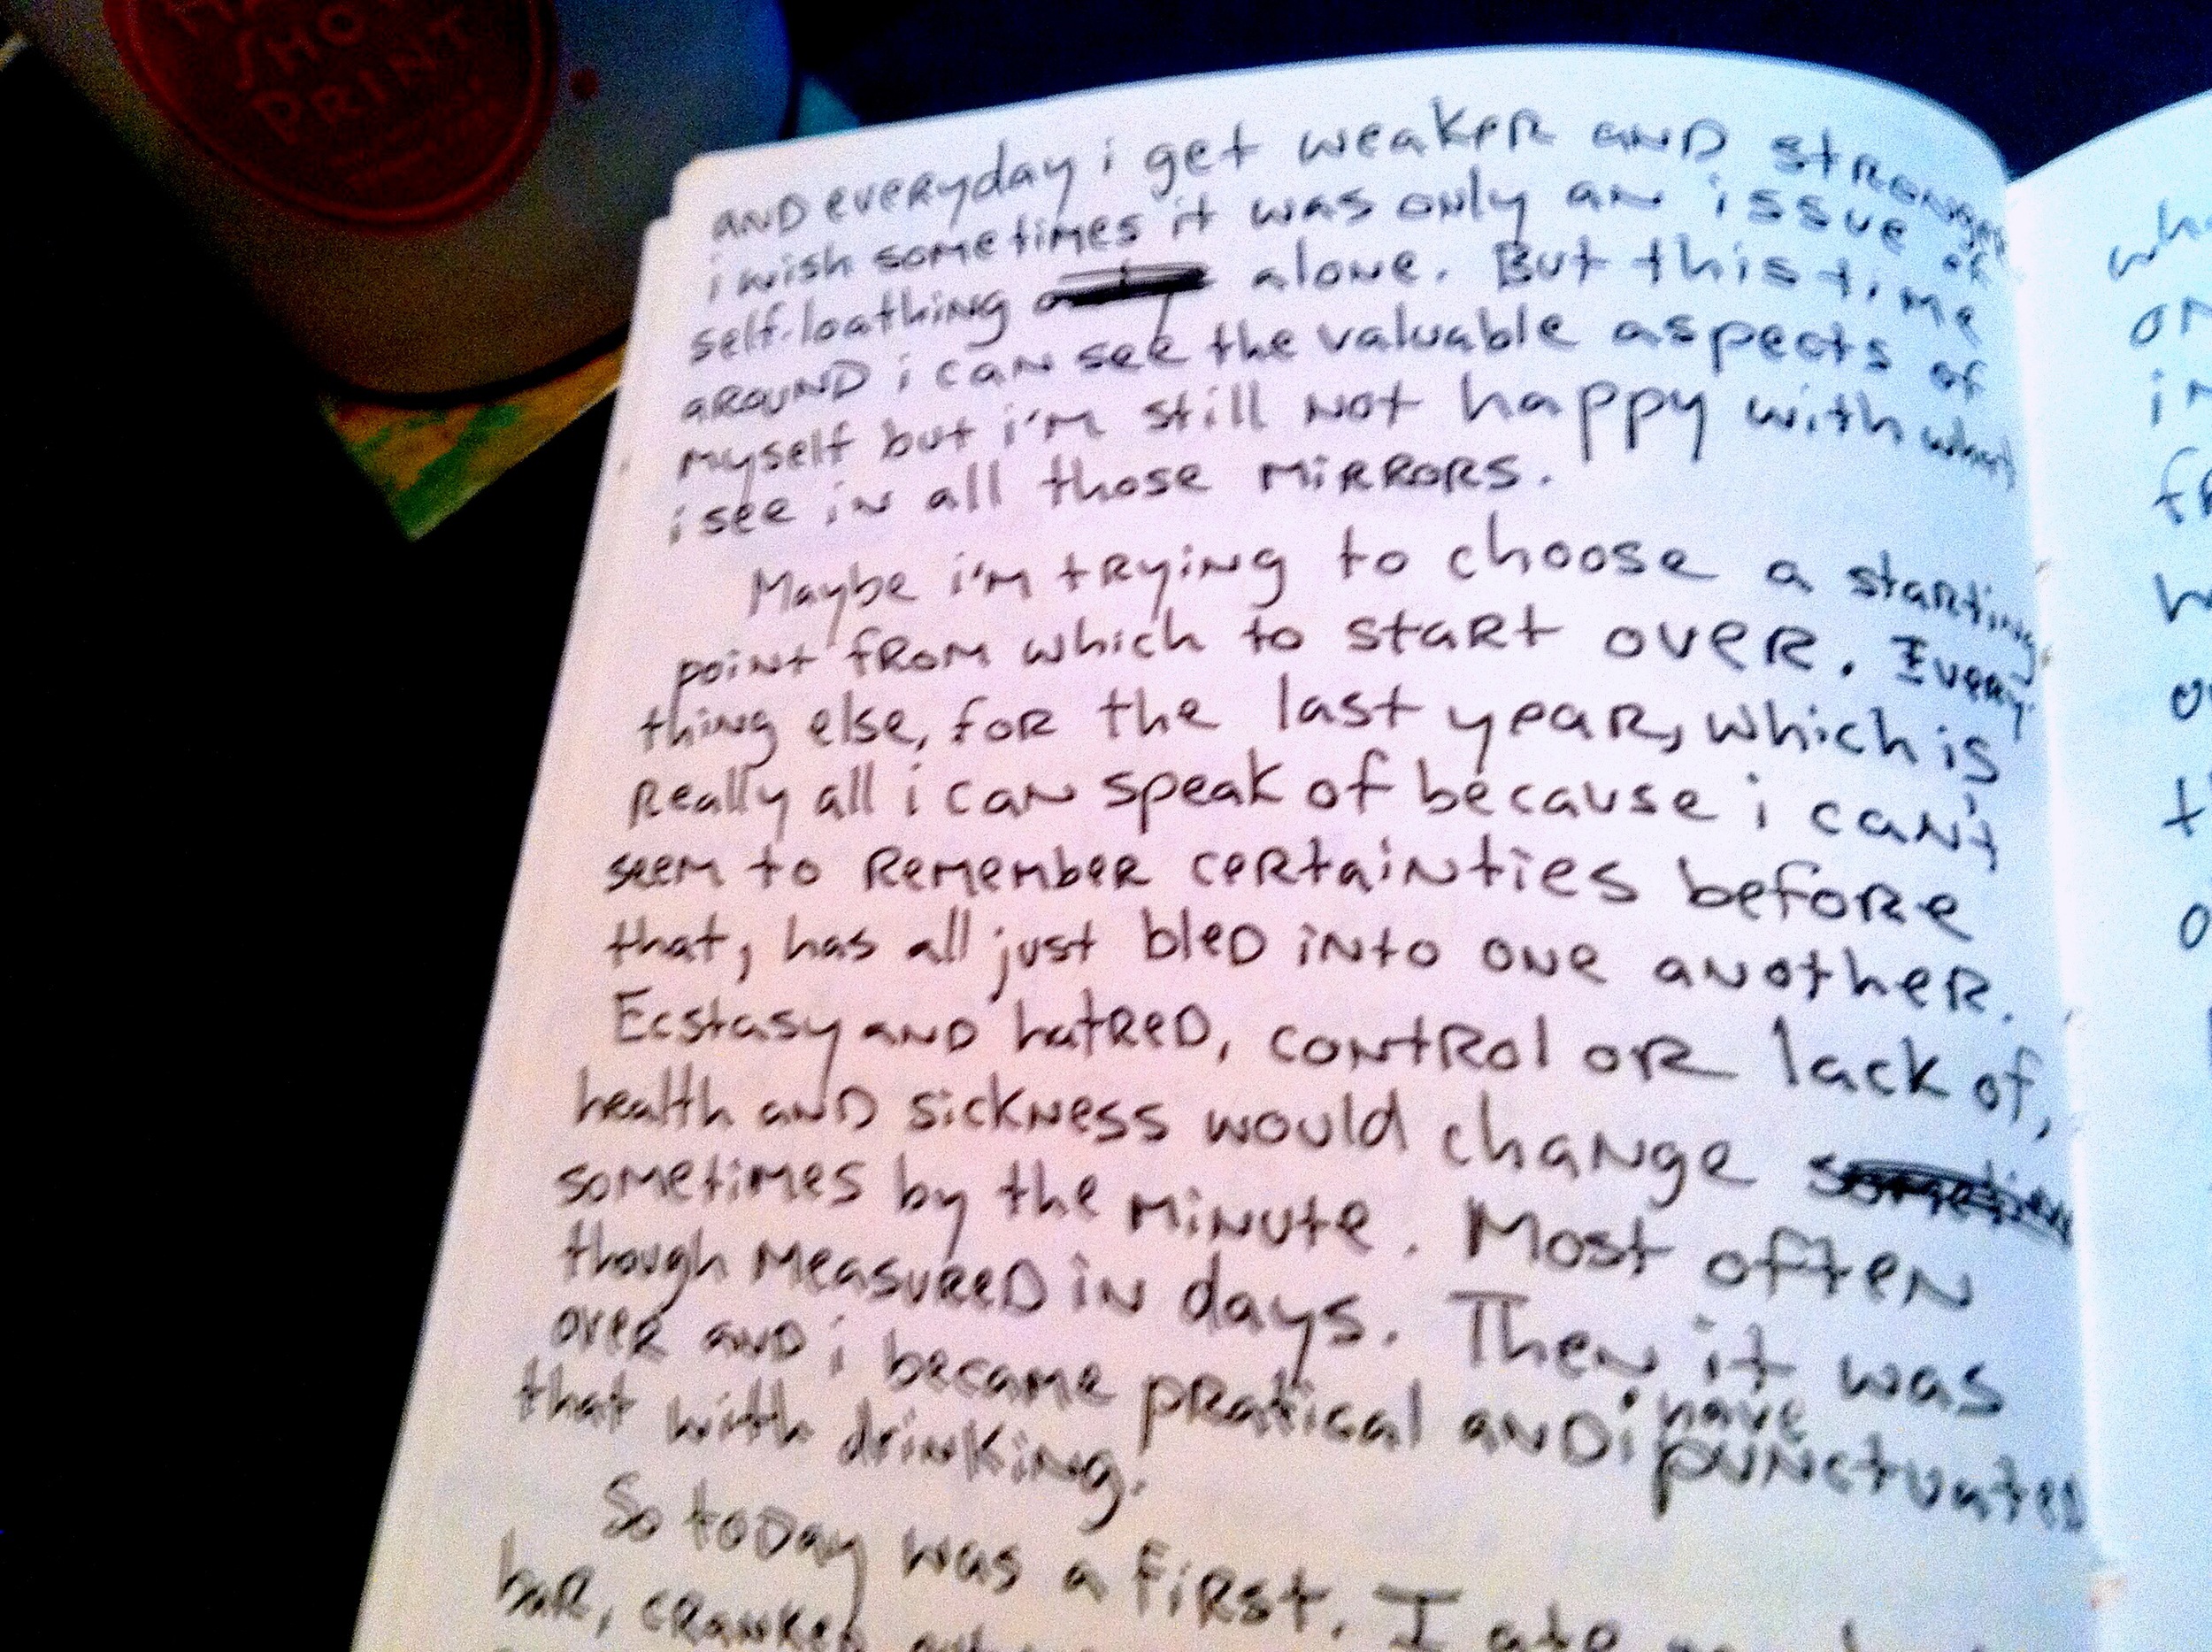 SHOT
PRINT
AND everyday i get weaker AND stronger
i wish sometimes it was only an issue of
self-loathing alone. But this time
AROUND i can see the valuable aspects of
myself but i'm still not happy with what
i see in all those MIRRORS.
Maybe i'm trying to choose a starting
point from which to start over. Every
thing else, for the last year, which is
Really all i can speak of because i can't
seem to Remember certainties before
that, has all just bled into one another.
Ecstasy and hatred, control or lack of,
health and sickness would change sometimes
sometimes by the minute. Most often
though measured in days. Then it was
over and i became pratical and i have punctuated
that with drinking.
So today was a first. I ate
bar, cranked
who